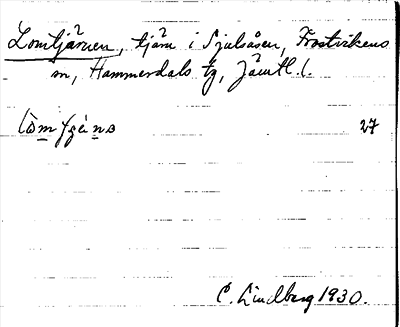 Lomtjärnen, tjärn i Sjulsåsen, Frostvikens
sn, Hammerdals tg, Jämtl. l.
27
C. Lindberg 1930.